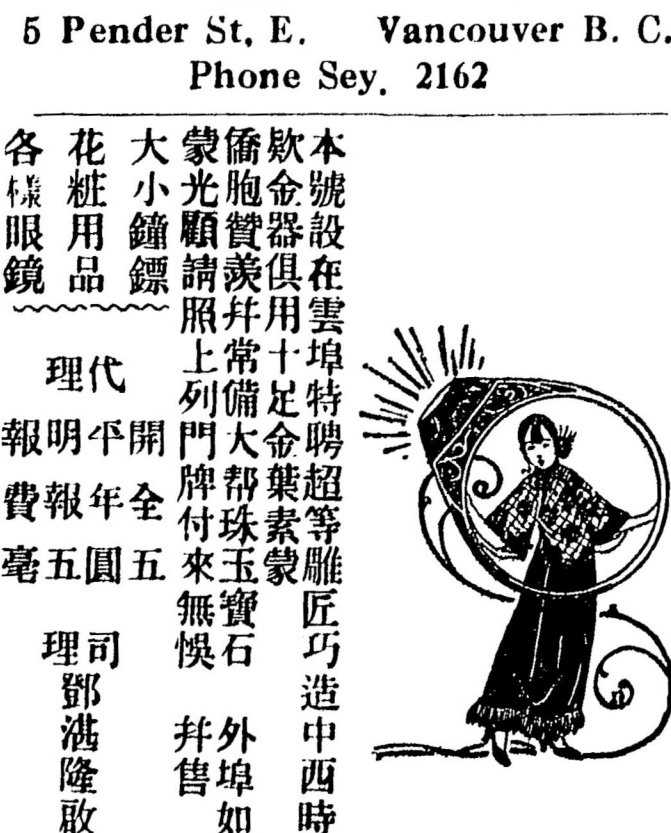 5 Pender St, E. Vancouver B. C.
Phone Sey. 2162
本號設在雲埠特聘超等雕匠巧造中西時
欵金器俱用十足金葉素蒙
僑胞贊羨幷常備大帮珠玉寶石 外埠如
蒙光顧請照上列門牌付來無悞 幷售
大小鐘鏢
花粧用品
各樣眼鏡
代理
開平明報
全年報費
五圓五毫
司理
鄧湛隆啟